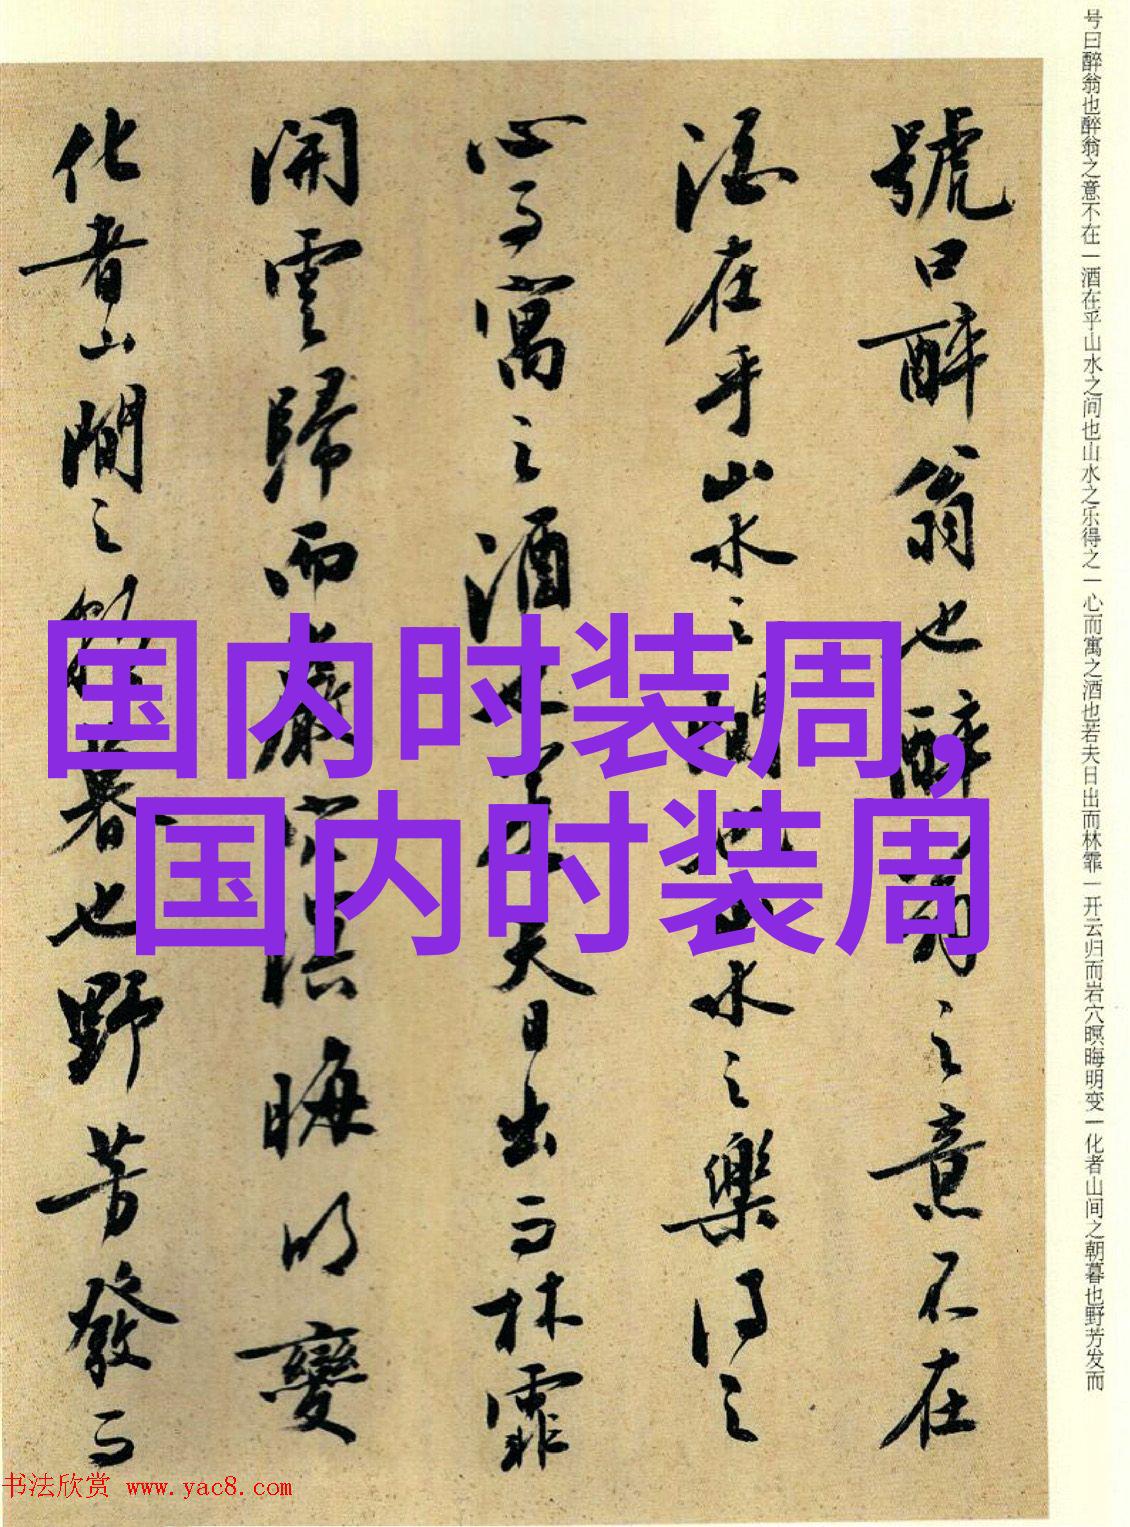 號曰醉翁也醉翁之意不在
酒在乎山水之間也山水之樂得之
心而寓之酒也若夫日出而林霏
開雲歸而巖穴暝晦明變
化者山間之朝暮也野芳發而
号曰醉翁也醉翁之意不在一酒在乎山水之间也山水之乐得之一心而寓之酒也若夫日出而林霏一开云归而岩穴暝晦明变一化者山间之朝暮也野芳发而
国内时装周,
国内时装周
书法欣赏 www.yac8.com